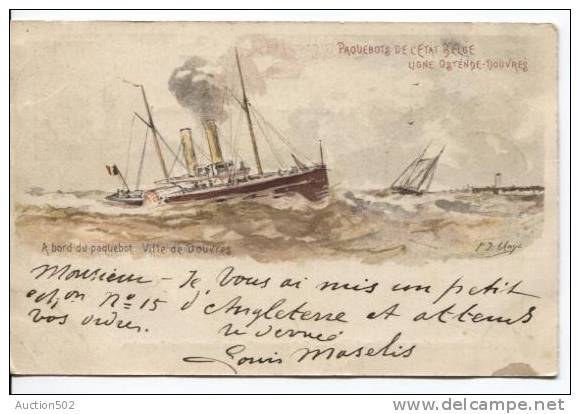 PAQUEBOTS DE L'ETAT BELGE
LIGNE OSTENDE-DOUVRES
A bord du paquebot Ville de Douvres
Monsieur - Je vous ai mis un petit
No 15 d'Angleterre et attends
vos ordres.
Louis Maselis
Auction502
www.delcampe.net